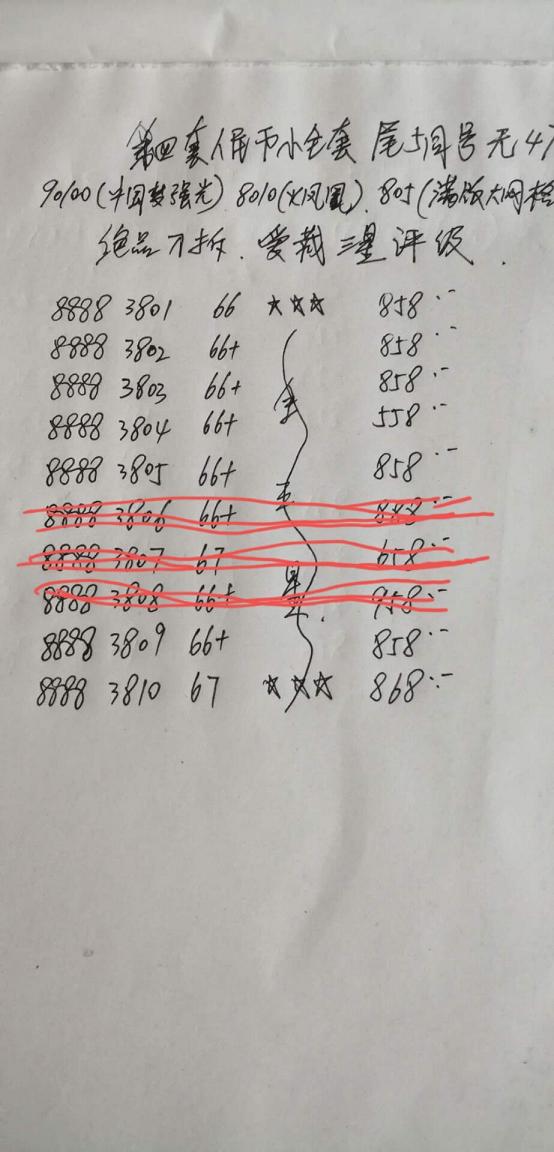 第四套人民币小全套 尾5同号无47
90100(中国梦强光) 8010(火凤凰). 805(满版大网格
绝品刀拆. 爱藏三星评级.
8888 3801 66 ☆☆☆ 858.--
8888 3802 66+ 858.--
8888 3803 66+ 全 858.--
8888 3804 66+ 558.--
8888 3805 66+ 858.--
8888 3806 66+ 848.--
8888 3807 67 658.--
8888 3808 66+ 星. 958.--
8888 3809 66+ 858.--
8888 3810 67 ☆☆☆ 868.--